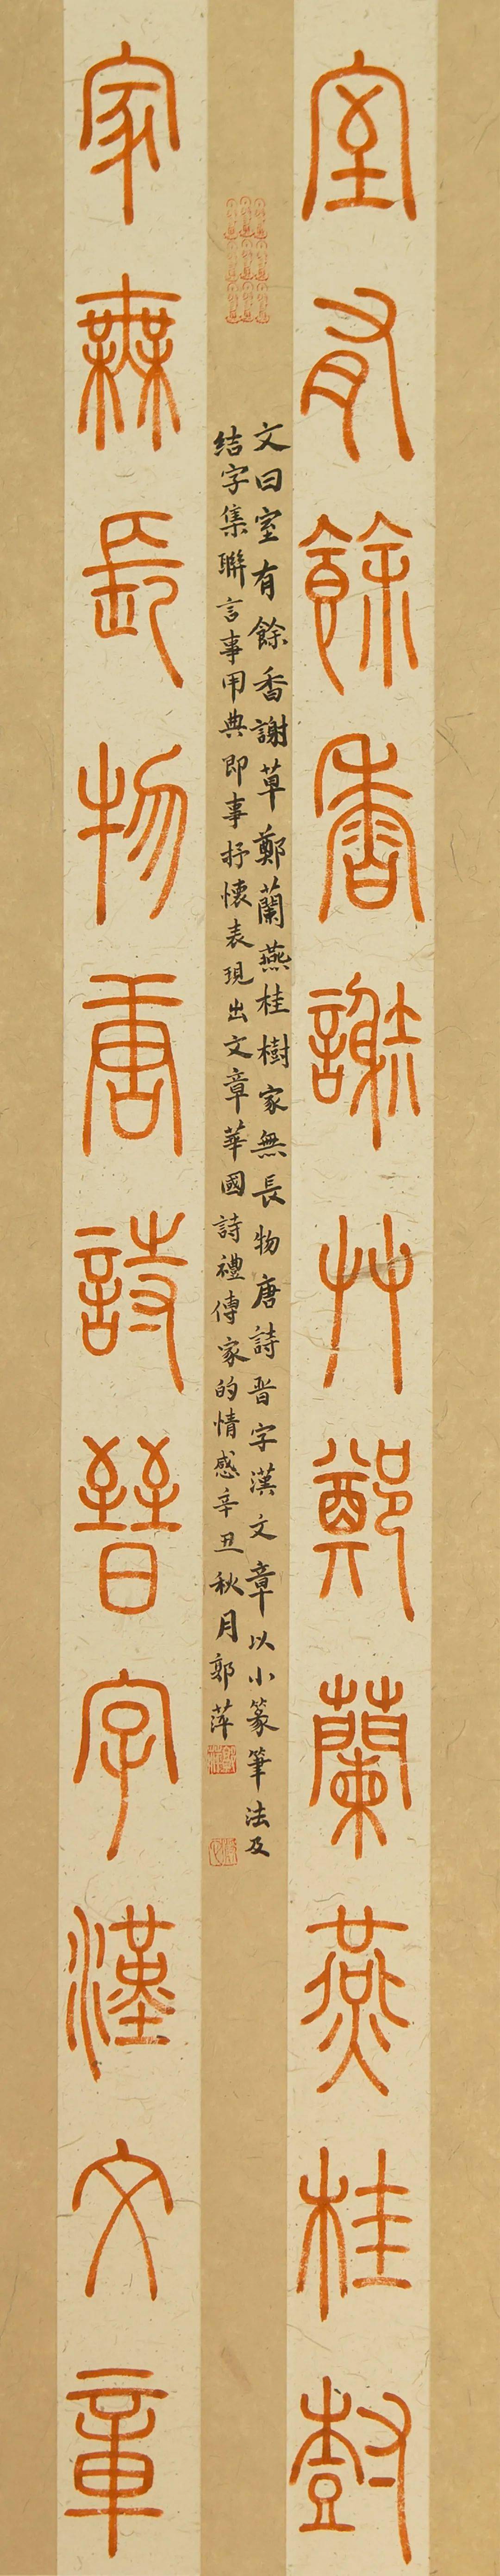 室有餘香謝艸鄭蘭燕桂樹
家無長物唐詩晉字漢文章
文曰室有餘香謝草鄭蘭燕桂樹家無長物唐詩晋字漢文章以小篆筆法及
结字集聯言事用典即事抒懷表現出文章華國詩禮傳家的情感辛丑秋月郭萍